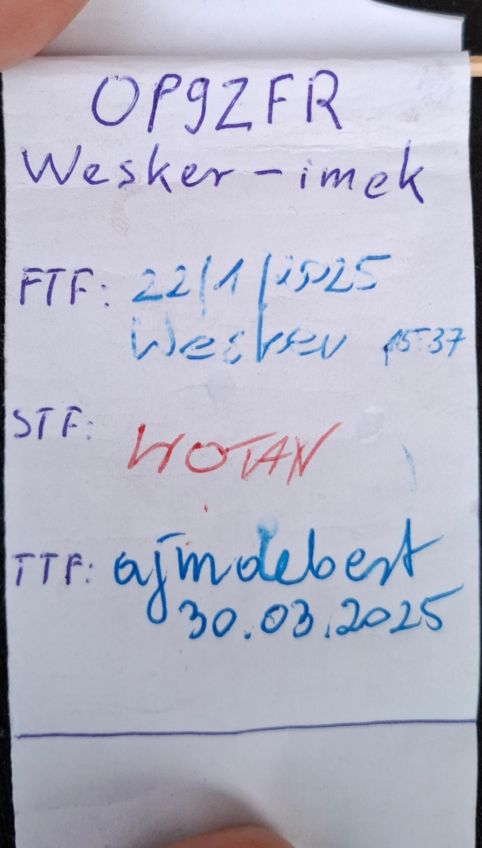 OP9ZFR
Wesker-imek
FTF: 22/1/2025
Wesker 15:37
STF: WOTAN
TTF: ajmdebest
30.03.2025